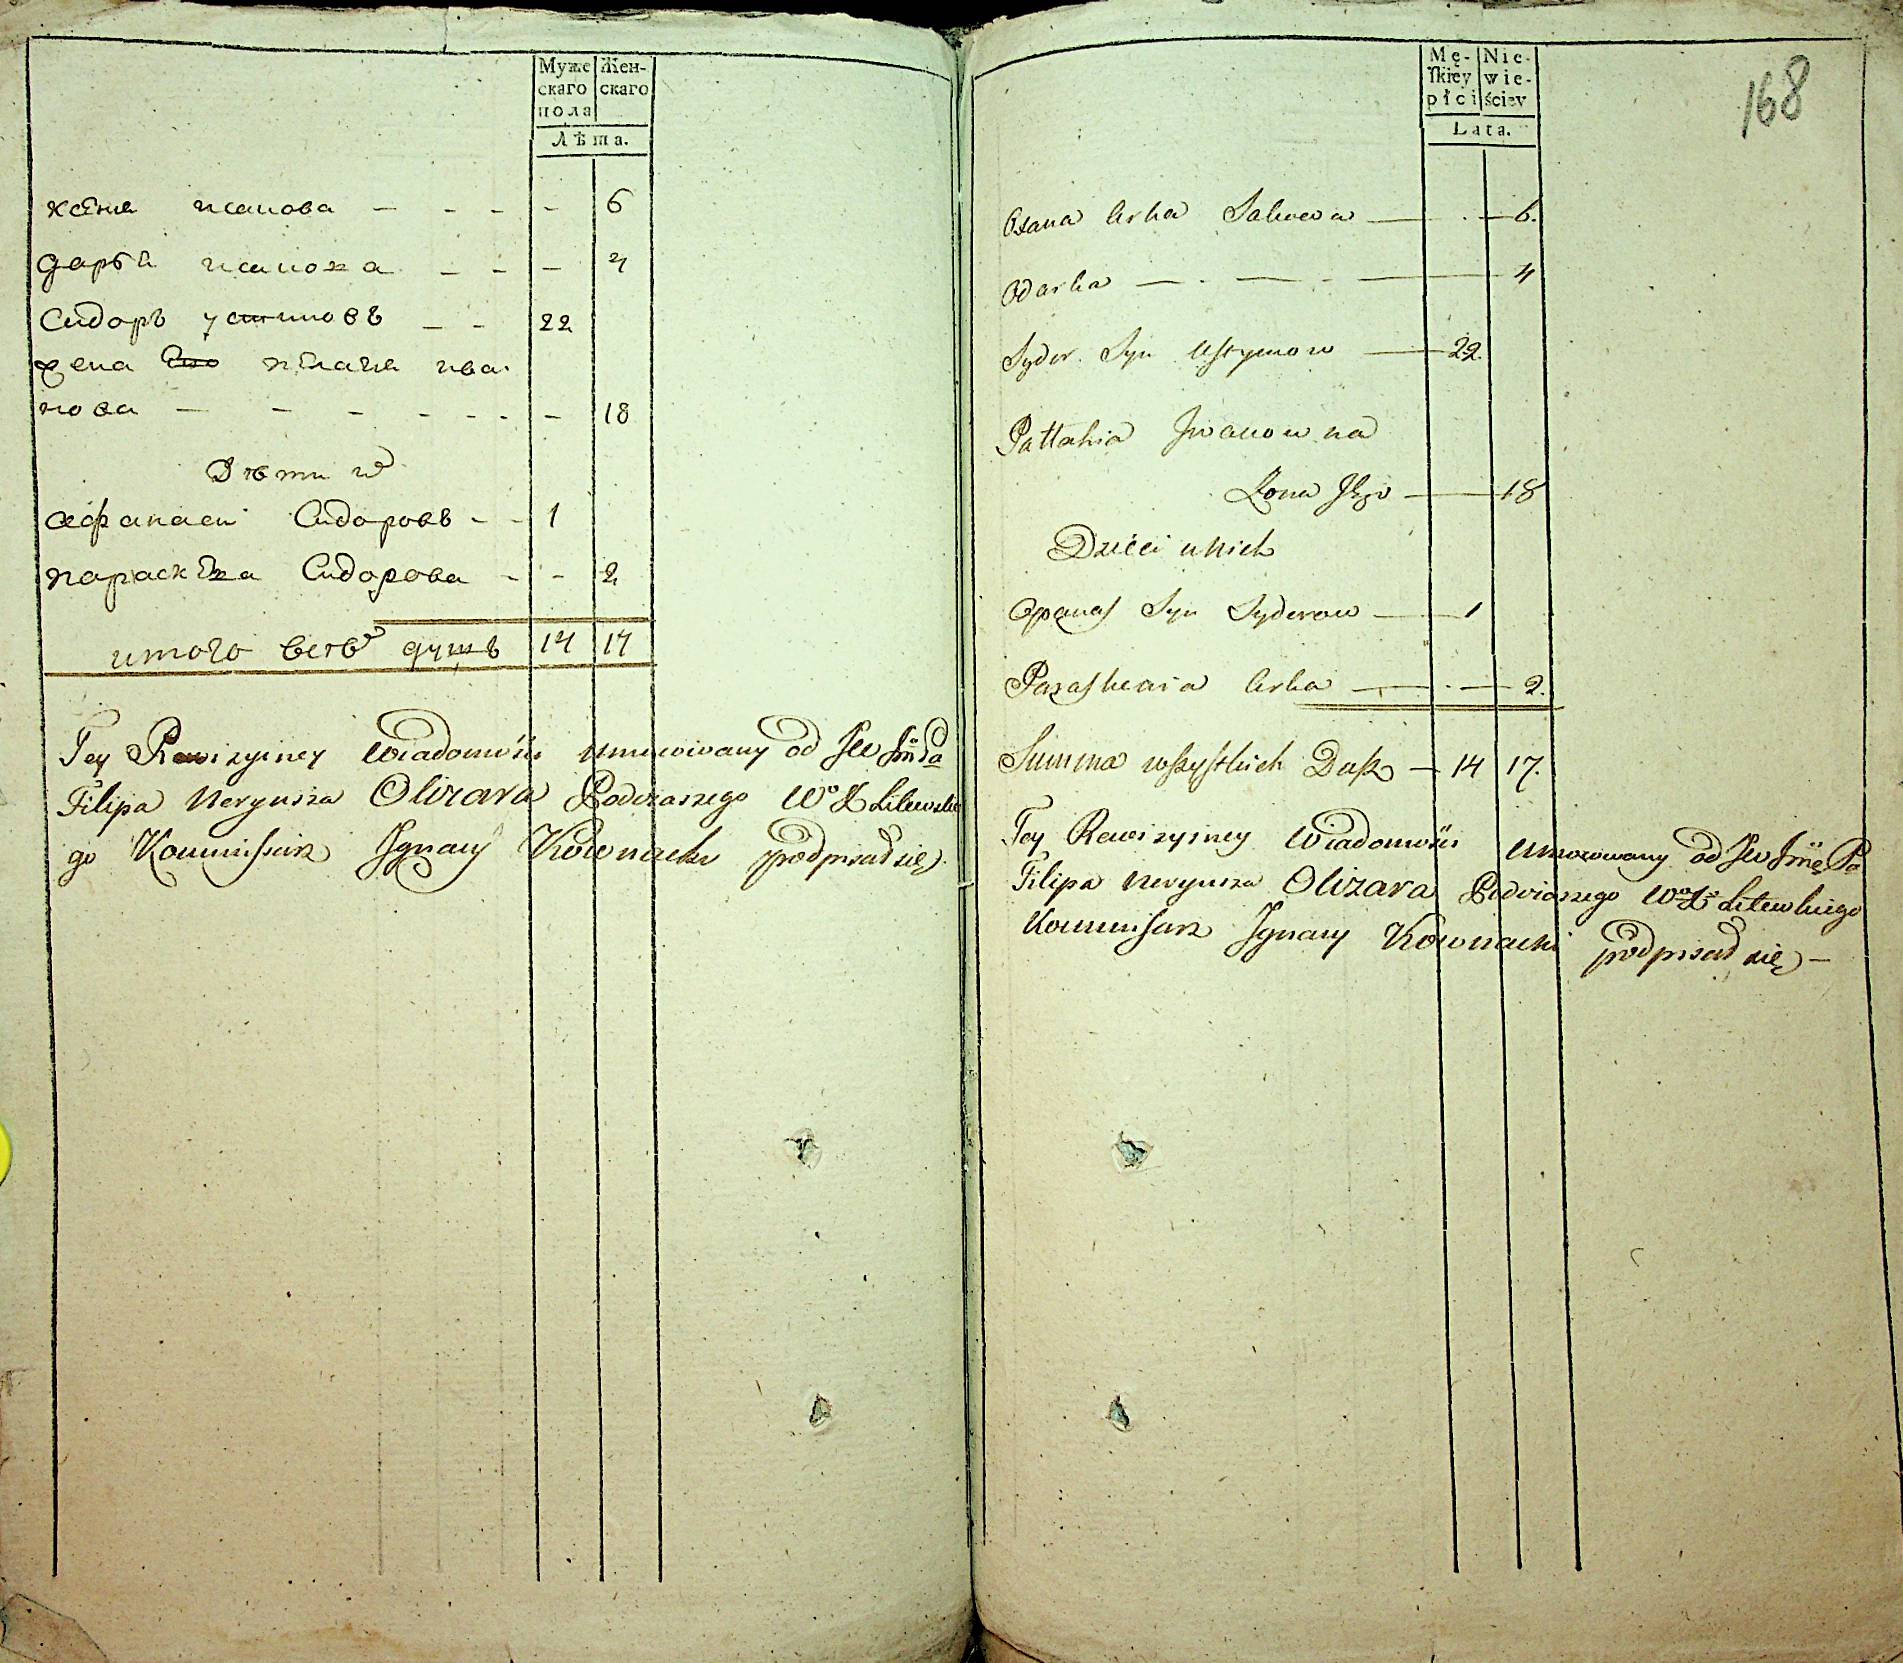 Муже
скаго
пола
Жен-
скаго
Лѣта.
ксенія исакова - - - - 6
дарья исакова - - - 4
Сидоръ устиновъ - - 22
жена пелагия ива-
нова - - - - - - - 18
Дѣти их
афанасей Сидоровъ - - 1
параскева Сидорова - - 2
итого всѣх душъ 14 17
Tey Rewizyiney Wiadomości umocowany od JW Jmć Pa
Filipa Nerynsza Olizara Podczaszego Wo X Litewskie
go Kommissarz Jgnacy Kownacki podpisał się
Mę-
skiey
płci
Nie-
wie-
ściey
Lata.
168
Oxana Crka Sakowa — 6.
Odarka — 4
Sydor Syn Ustymow — 22.
Pallahia Jwanowna
Żona Jego — 18
Dzieci u Nich
Opanas Syn Syderow — 1
Paraskewia Crka — 2.
Summa wszystkich Dusz — 14 17.
Tey Rewizyiney Wiadomości umocowany od JW Jmć Pa
Filipa Nerynsza Olizara Podczaszego Wo X Litewskiego
Kommissarz Jgnacy Kownacki podpisał się —